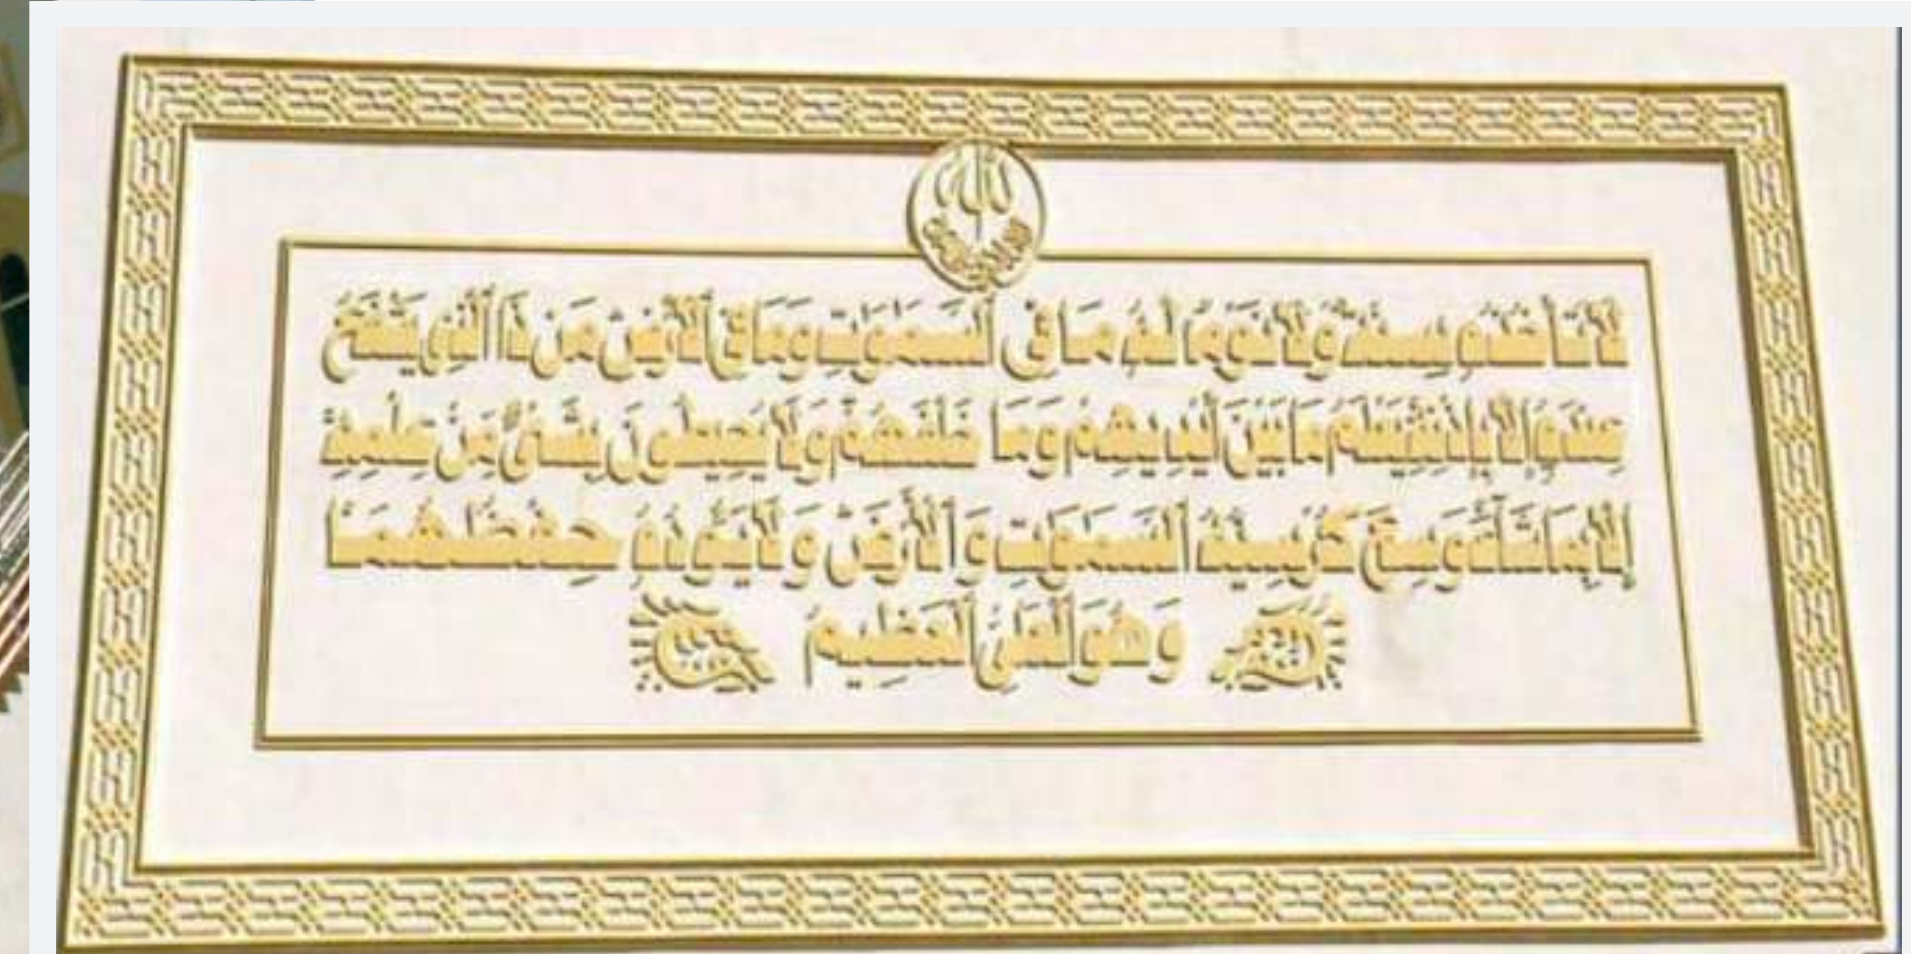 الله
لَا تَأْخُذُهُ سِنَةٌ وَلَا نَوْمٌ لَهُ مَا فِي السَّمَاوَاتِ وَمَا فِي الْأَرْضِ مَنْ ذَا الَّذِي يَشْفَعُ
عِنْدَهُ إِلَّا بِإِذْنِهِ يَعْلَمُ مَا بَيْنَ أَيْدِيهِمْ وَمَا خَلْفَهُمْ وَلَا يُحِيطُونَ بِشَيْءٍ مِنْ عِلْمِهِ
إِلَّا بِمَا شَاءَ وَسِعَ كُرْسِيُّهُ السَّمَاوَاتِ وَالْأَرْضَ وَلَا يَئُودُهُ حِفْظُهُمَا
وَهُوَ الْعَلِيُّ الْعَظِيمُ